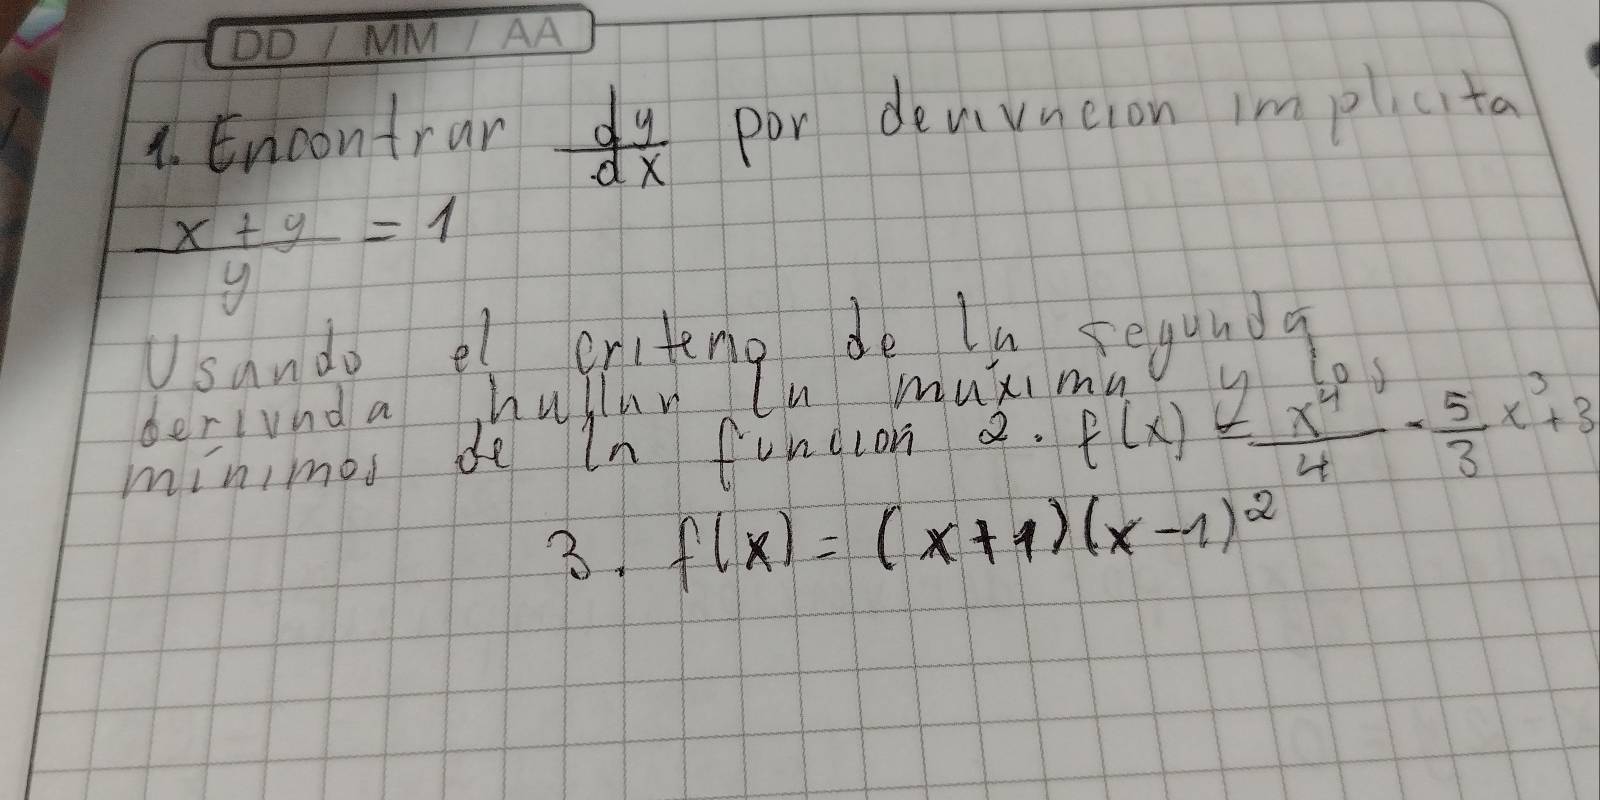 DD / MM / AA
1. Encontrar dy/dx por derivacion implicita
x + y / y = 1
Usando el criterio de la segunda
derivada hallar la máxima y los
mínimos de la funcion 2. f(x) = x⁴/4 - 5/3 x³ + 3
3. f(x) = (x+1)(x-1)²